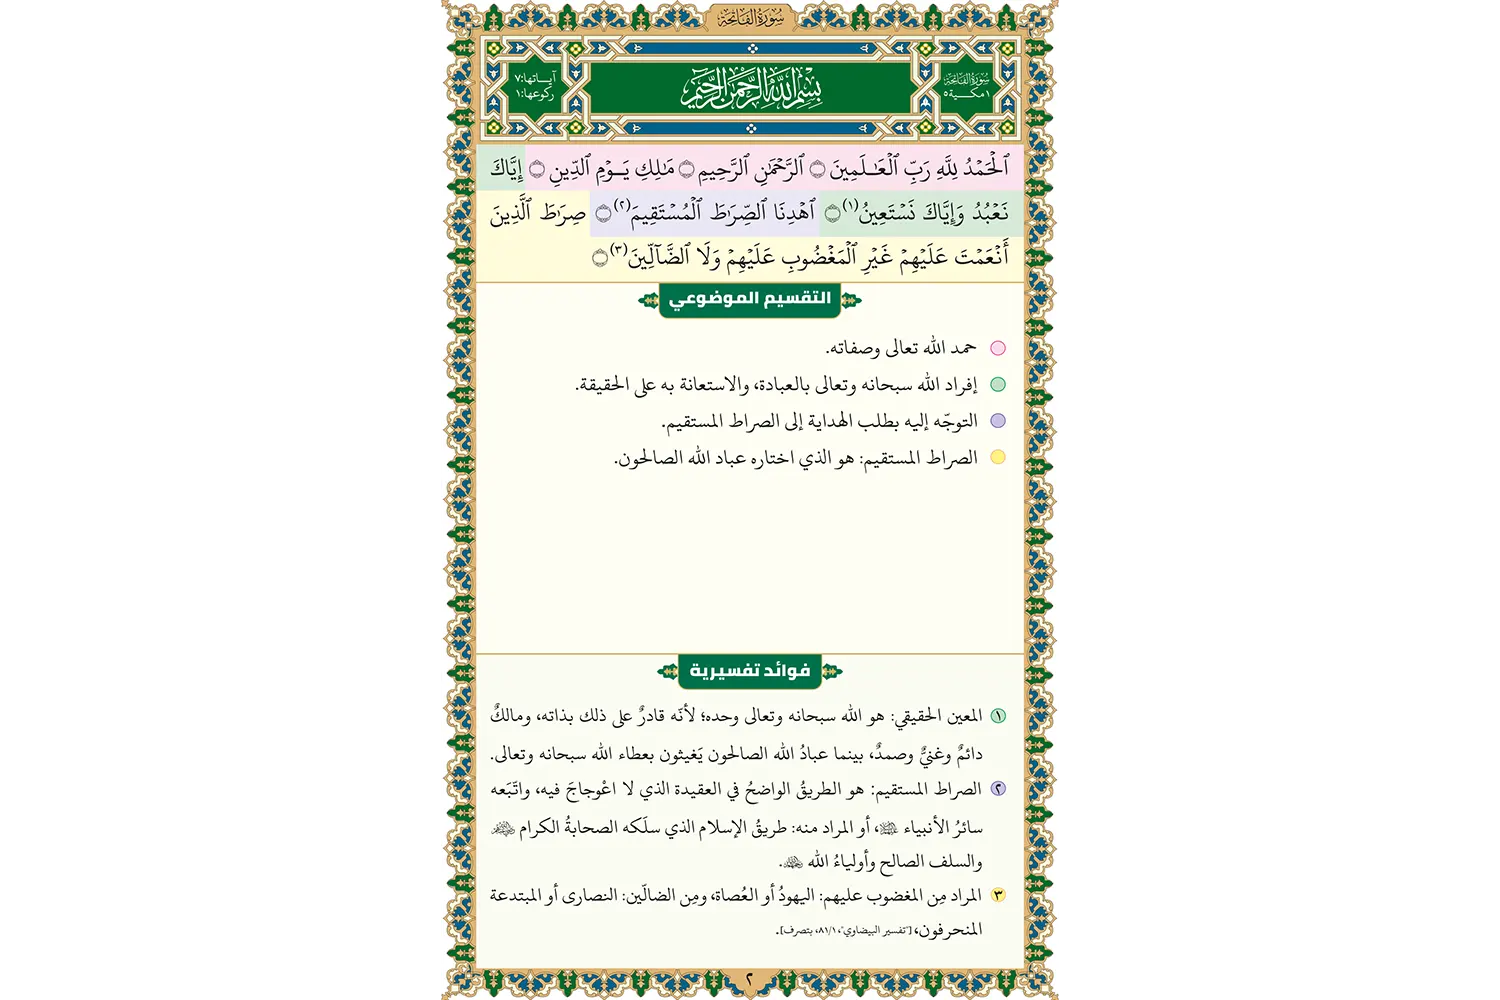 سُورَةُ الفَاتِحَة
سُورَةُ الفَاتِحَة
١ مكـيـة ٥
بِسْمِ اللهِ الرَّحْمٰنِ الرَّحِيْمِ
آيـاتها:٧
ركوعها:١
ٱلْحَمْدُ لِلَّهِ رَبِّ ٱلْعَـٰلَمِينَ ۝ ٱلرَّحْمَٰنِ ٱلرَّحِيمِ ۝ مَٰلِكِ يَـوْمِ ٱلدِّينِ ۝ إِيَّاكَ
نَعْبُدُ وَإِيَّاكَ نَسْتَعِينُ(١) ۝ ٱهْدِنَا ٱلصِّرَٰطَ ٱلْمُسْتَقِيمَ(٢) ۝ صِرَٰطَ ٱلَّذِينَ
أَنْعَمْتَ عَلَيْهِمْ غَيْرِ ٱلْمَغْضُوبِ عَلَيْهِمْ وَلَا ٱلضَّآلِّينَ(٣) ۝
التقسيم الموضوعي
حمد الله تعالى وصفاته.
إفراد الله سبحانه وتعالى بالعبادة، والاستعانة به على الحقيقة.
التوجّه إليه بطلب الهداية إلى الصراط المستقيم.
الصراط المستقيم: هو الذي اختاره عباد الله الصالحون.
فوائد تفسيرية
١ المعين الحقيقي: هو الله سبحانه وتعالى وحده؛ لأنّه قادرٌ على ذلك بذاته، ومالكٌ
دائمٌ وغنيٌّ وصمدٌ، بينما عبادُ الله الصالحون يَغيثون بعطاء الله سبحانه وتعالى.
٢ الصراط المستقيم: هو الطريقُ الواضحُ في العقيدة الذي لا اعْوجاجَ فيه، واتّبَعه
سائرُ الأنبياء ، أو المراد منه: طريقُ الإسلام الذي سلَكه الصحابةُ الكرام
والسلف الصالح وأولياءُ الله .
٣ المراد مِن المغضوب عليهم: اليهودُ أو العُصاة، ومِن الضالّين: النصارى أو المبتدعة
المنحرفون، ["تفسير البيضاوي"، ٨١/١، بتصرف].
٢